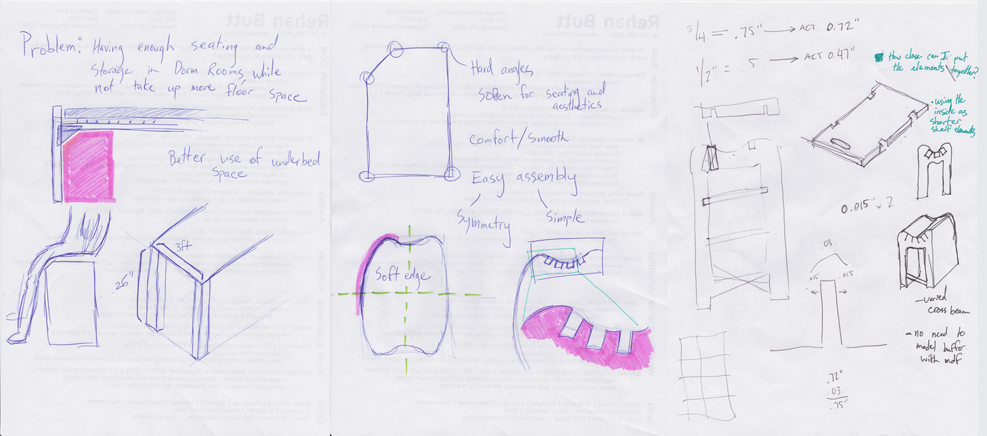 Problem: Having enough seating and
storage in Dorm Rooms, while
not take up more floor space
Better use of underbed
space
3ft
26"
Hard angles
Soften for seating and
aesthetics
Comfort/Smooth
Easy assembly
Symmetry
Simple
Soft edge
3/4 = .75" → ACT. 0.72"
1/2" = .5 → ACT 0.47"
How close can I put
the elements together?
- using the
inside as
shorter
shelf elements
0.015" x 2
.03
.015
.015
- varied
cross beam
- no need to
model buffer
with mdf
.72"
.03
.75"
Rehan Butt